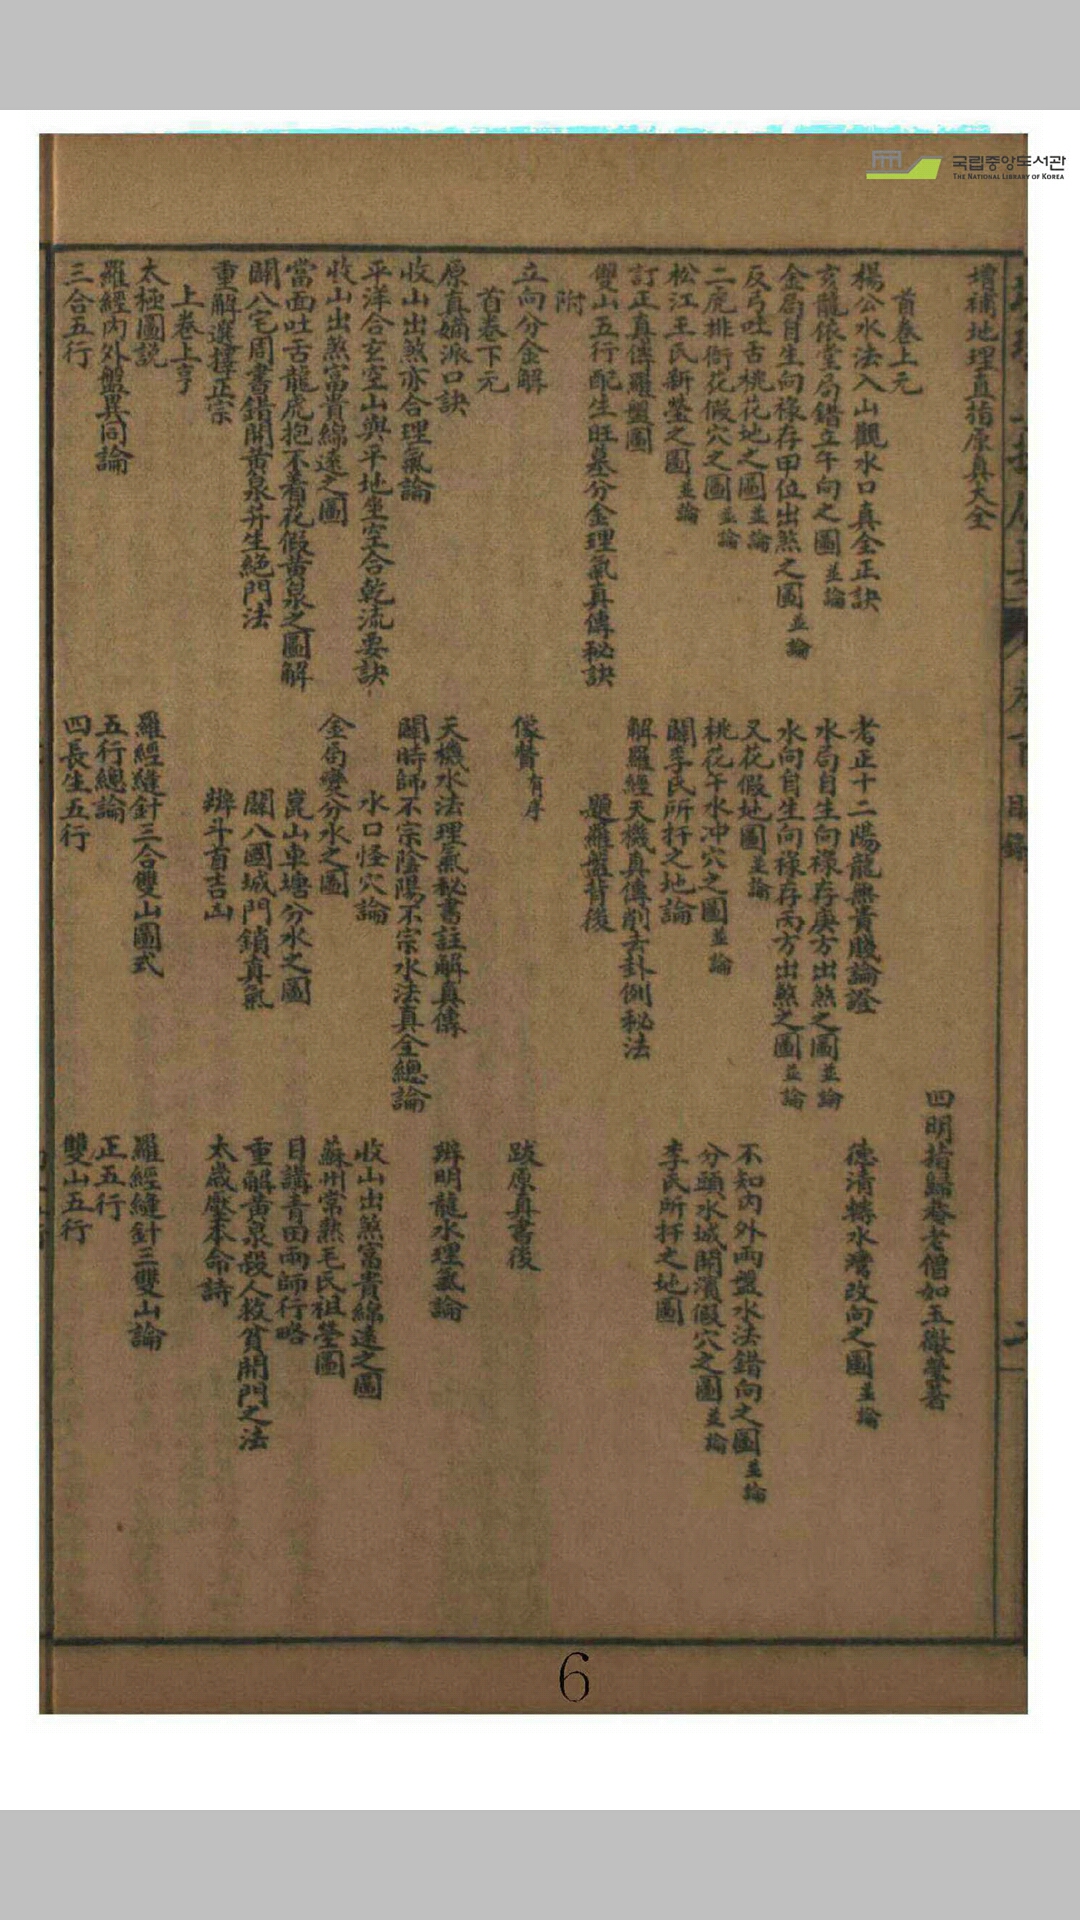 국립중앙도서관
THE NATIONAL LIBRARY OF KOREA
增補地理真指原真大全
四明指歸菴老僧如玉徹瑩著
首卷上元
楊公水法入山觀水口真全正訣
考正十二陽龍無貴賤論證
德清轉水灣改向之圖並論
亥龍依堂局錯立午向之圖並論
水局自生向祿存庚方出煞之圖並論
金局自生向祿存甲位出煞之圖並論
水向自生向祿存丙方出煞之圖並論
反弓吐舌桃花地之圖並論
又花假地圖並論
不知內外兩盤水法錯向之圖並論
二虎排衙花假穴之圖並論
桃花午水冲穴之圖並論
分頭水城開濱假穴之圖並論
松江王氏新塋之圖並論
闢李氏所扞之地論
李氏所扞之地圖
訂正真傳羅盤圖
解羅經天機真傳削去卦例秘法
雙山五行配生旺墓分金理氣真傳秘訣
題羅盤背後
附
立向分金解
像贊有序
跋原真書後
首卷下元
原真嫡派口訣
天機水法理氣秘書註解真傳
辨明龍水理氣論
收山出煞亦合理氣論
闢時師不宗陰陽不宗水法真全總論
平洋合玄空山與平地坐空合乾流要訣
水口怪穴論
收山出煞富貴綿遠之圖
收山出煞富貴綿遠之圖
金局變分水之圖
蘇州常熟毛氏祖塋圖
當面吐舌龍虎抱不着花假黃泉之圖解
崑山車塘分水之圖
目講青田兩師行略
闢八宅周書錯開黃泉并生絕門法
闢八國城門鎖真氣
重解黃泉殺人救貧開門之法
重解選擇正宗
辨斗首吉凶
太歲壓本命詩
上卷上亨
太極圖說
羅經縫針三合雙山圖式
羅經縫針三雙山論
羅經內外盤異同論
五行總論
正五行
三合五行
四長生五行
雙山五行
6